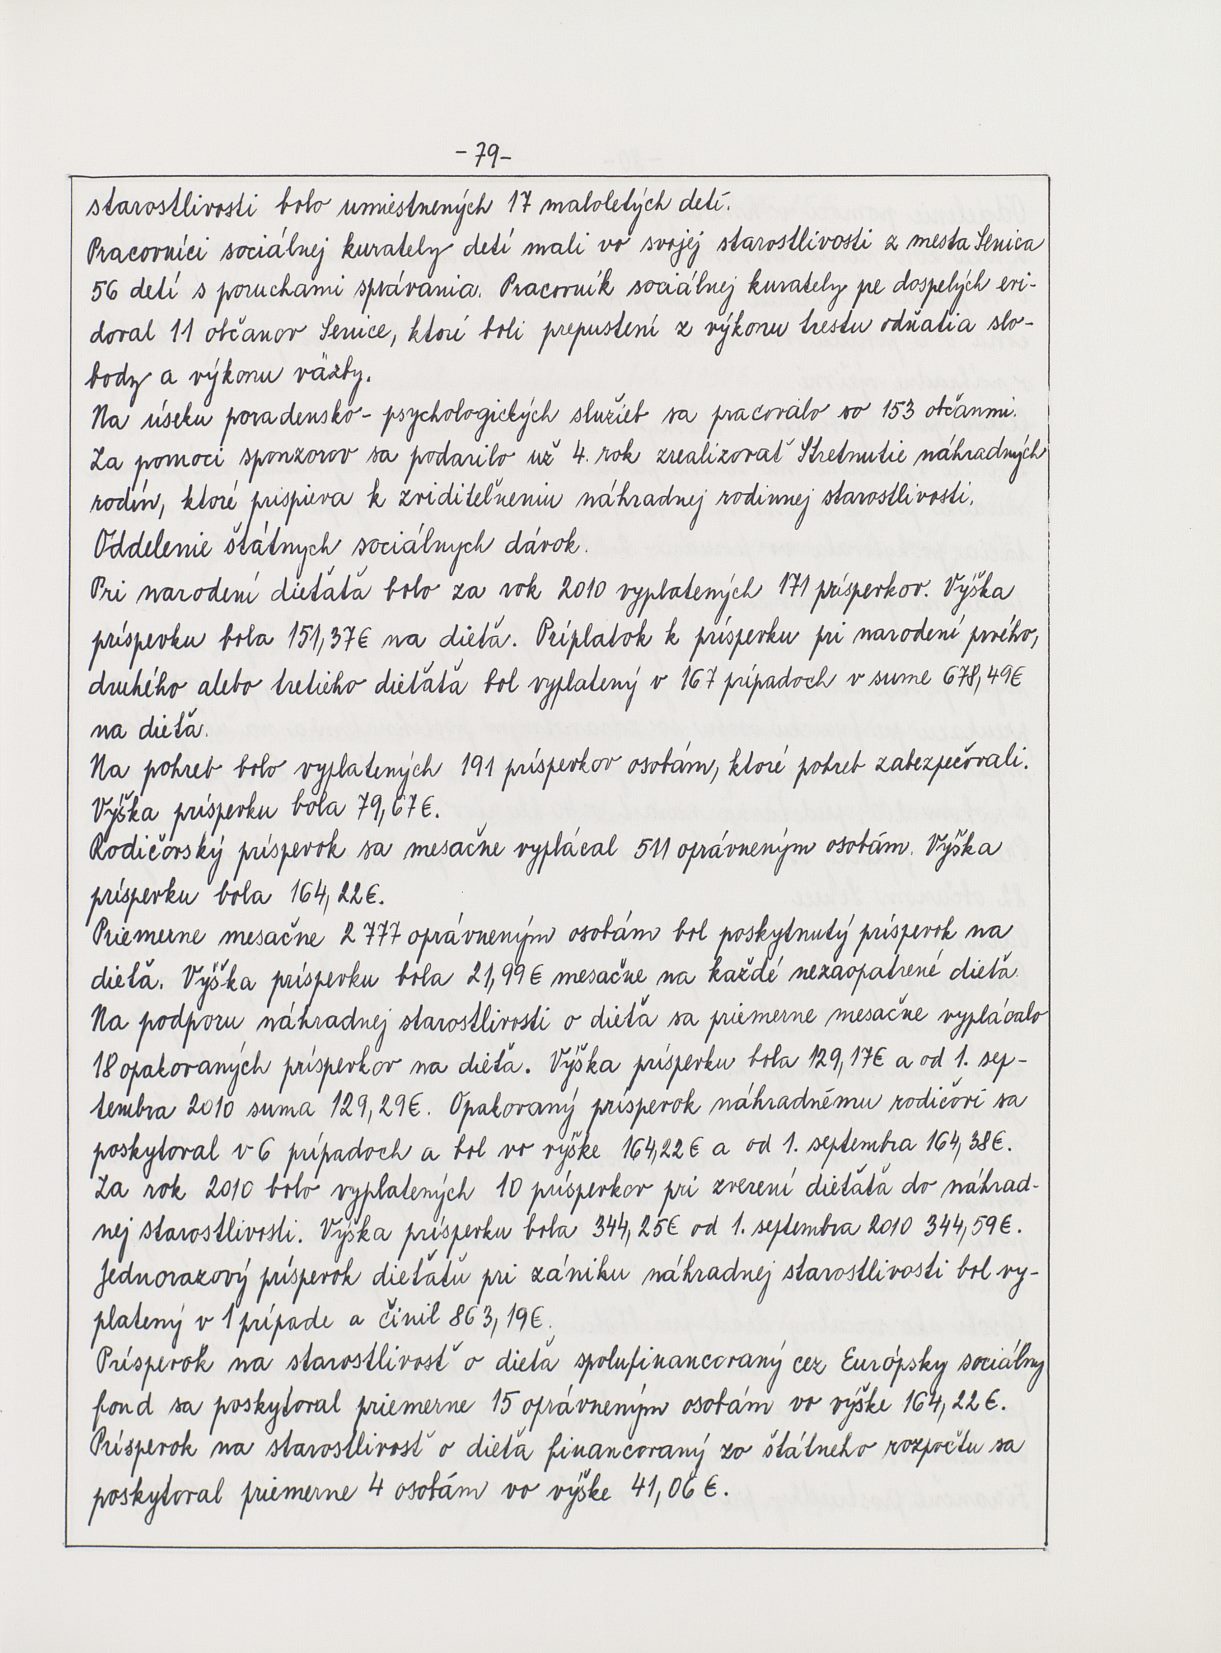 -79-
starostlivosti bolo umiestnených 17 maloletých detí.
Pracovníci sociálnej kurately detí mali vo svojej starostlivosti z mesta Senica
56 detí s poruchami správania. Pracovník sociálnej kurately pe dospelých evi-
doval 11 občanov Senice, ktoré boli prepustení z výkonu trestu odňatia slo-
body a výkonu väzby.
Na úseku poradensko-psychologických služieb sa pracovalo so 153 občanmi.
Za pomoci sponzorov sa podarilo už 4. rok zrealizovať Stretnutie náhradných
rodín, ktoré prispieva k zviditeľneniu náhradnej rodinnej starostlivosti.
Oddelenie štátnych sociálnych dávok.
Pri narodení dieťaťa bolo za rok 2010 vyplatených 171 príspevkov. Výška
príspevku bola 151,37€ na dieťa. Príplatok k príspevku pri narodení prvého,
druhého alebo tretieho dieťaťa bol vyplatený v 167 prípadoch v sume 678,49€
na dieťa.
Na pohreb bolo vyplatených 191 príspevkov osobám, ktoré pohreb zabezpečovali.
Výška príspevku bola 79,67€.
Rodičovský príspevok sa mesačne vyplácal 511 oprávneným osobám. Výška
príspevku bola 164,22€.
Priemerne mesačne 2 777 oprávneným osobám bol poskytnutý príspevok na
dieťa. Výška príspevku bola 21,99€ mesačne na každé nezaopatrené dieťa.
Na podporu náhradnej starostlivosti o dieťa sa priemerne mesačne vyplácalo
18 opakovaných príspevkov na dieťa. Výška príspevku bola 129,17€ a od 1. sep-
tembra 2010 suma 129,29€. Opakovaný príspevok náhradnému rodičovi sa
poskytoval v 6 prípadoch a bol vo výške 164,22€ a od 1. septembra 164,38€.
Za rok 2010 bolo vyplatených 10 príspevkov pri zverení dieťaťa do náhrad-
nej starostlivosti. Výška príspevku bola 344,25€ od 1. septembra 2010 344,59€.
Jednorazový príspevok dieťaťu pri zániku náhradnej starostlivosti bol vy-
platený v 1 prípade a činil 863,19€.
Príspevok na starostlivosť o dieťa spolufinancovaný cez Európsky sociálny
fond sa poskytoval priemerne 15 oprávneným osobám vo výške 164,22€.
Príspevok na starostlivosť o dieťa financovaný zo štátneho rozpočtu sa
poskytoval priemerne 4 osobám vo výške 41,06€.